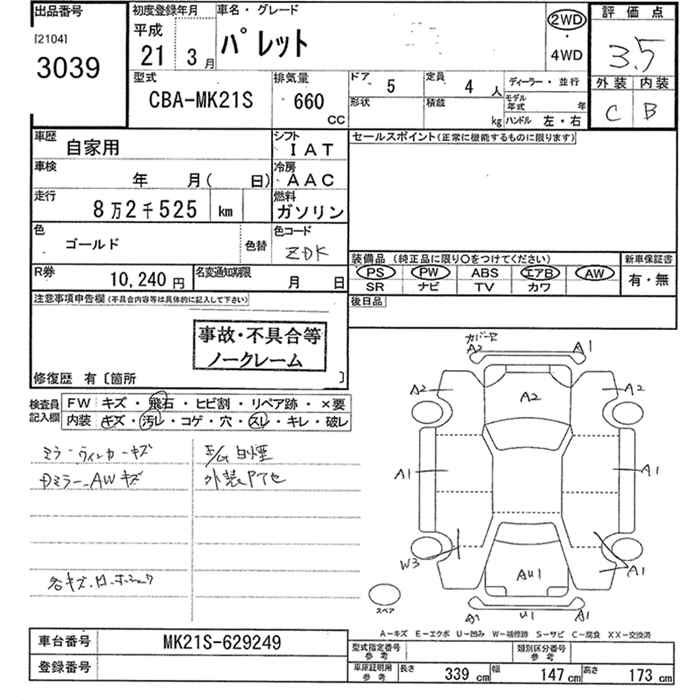 出品番号 初度登録年月 車名・グレード 2WD 評価点
[2104] 平成 パレット ・ 3.5
3039 21 3月 4WD 外装 内装
C B
型式 排気量 ドア 5 定員 4人 ディーラー・並行
CBA-MK21S 660 cc 形状 積載 kg モデル年式 年
ハンドル 左・右
車歴 自家用 シフト IAT セールスポイント(正常に機能するものに限ります)
車検 年 月( 日) 冷房 AAC
走行 8万2千525 km 燃料 ガソリン
色 ゴールド 色替 色コード ZDK
装備品 (純正品に限り○をつけてください) 新車保証書
PS PW ABS エアB AW 有・無
SR ナビ TV カワ
R券 10,240円 名変通知期限 月 日 後日品
注意事項申告欄(不具合内容等は具体的に記入して下さい)
事故・不具合等
ノークレーム
修復歴 有〔箇所 〕
検査員記入欄 FW キズ・飛石・ヒビ割・リペア跡・×要
内装 キズ・汚レ・コゲ・穴・スレ・キレ・破レ
ミラーウィンカーキズ E/G白煙
DミラーAWキズ 外装PTセ
カバーセ
A2 A1
A2 A2 A2
A1 A1
W3 AU1 A1
A1 U1 A1
スペア
A－キズ E－エクボ U－凹み W－補修跡 S－サビ C－腐食 XX－交換済
車台番号 MK21S-629249 型式指定番号 参考 類別区分番号 参考
登録番号 車庫証明用 参考 長さ 339cm 幅 147cm 高さ 173cm